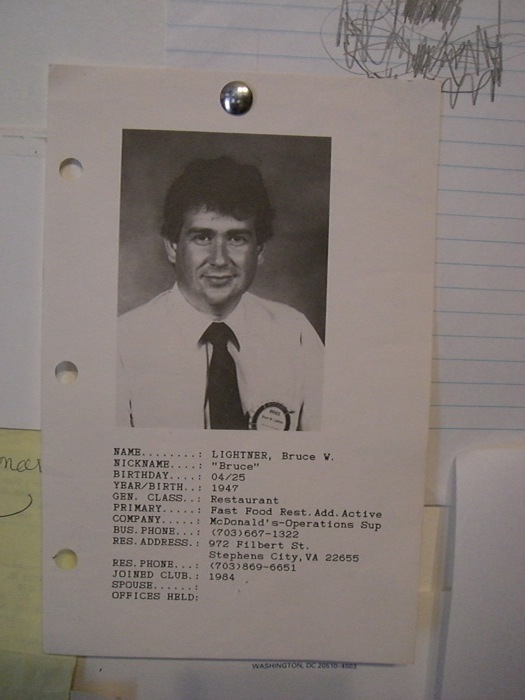 NAME........: LIGHTNER, Bruce W.
NICKNAME....: "Bruce"
BIRTHDAY....: 04/25
YEAR/BIRTH..: 1947
GEN. CLASS..: Restaurant
PRIMARY.....: Fast Food Rest.Add.Active
COMPANY.....: McDonald's-Operations Sup
BUS.PHONE...: (703)667-1322
RES.ADDRESS.: 972 Filbert St.
Stephens City,VA 22655
RES.PHONE...: (703)869-6651
JOINED CLUB.: 1984
SPOUSE......:
OFFICES HELD:
WASHINGTON, DC 20510-4603